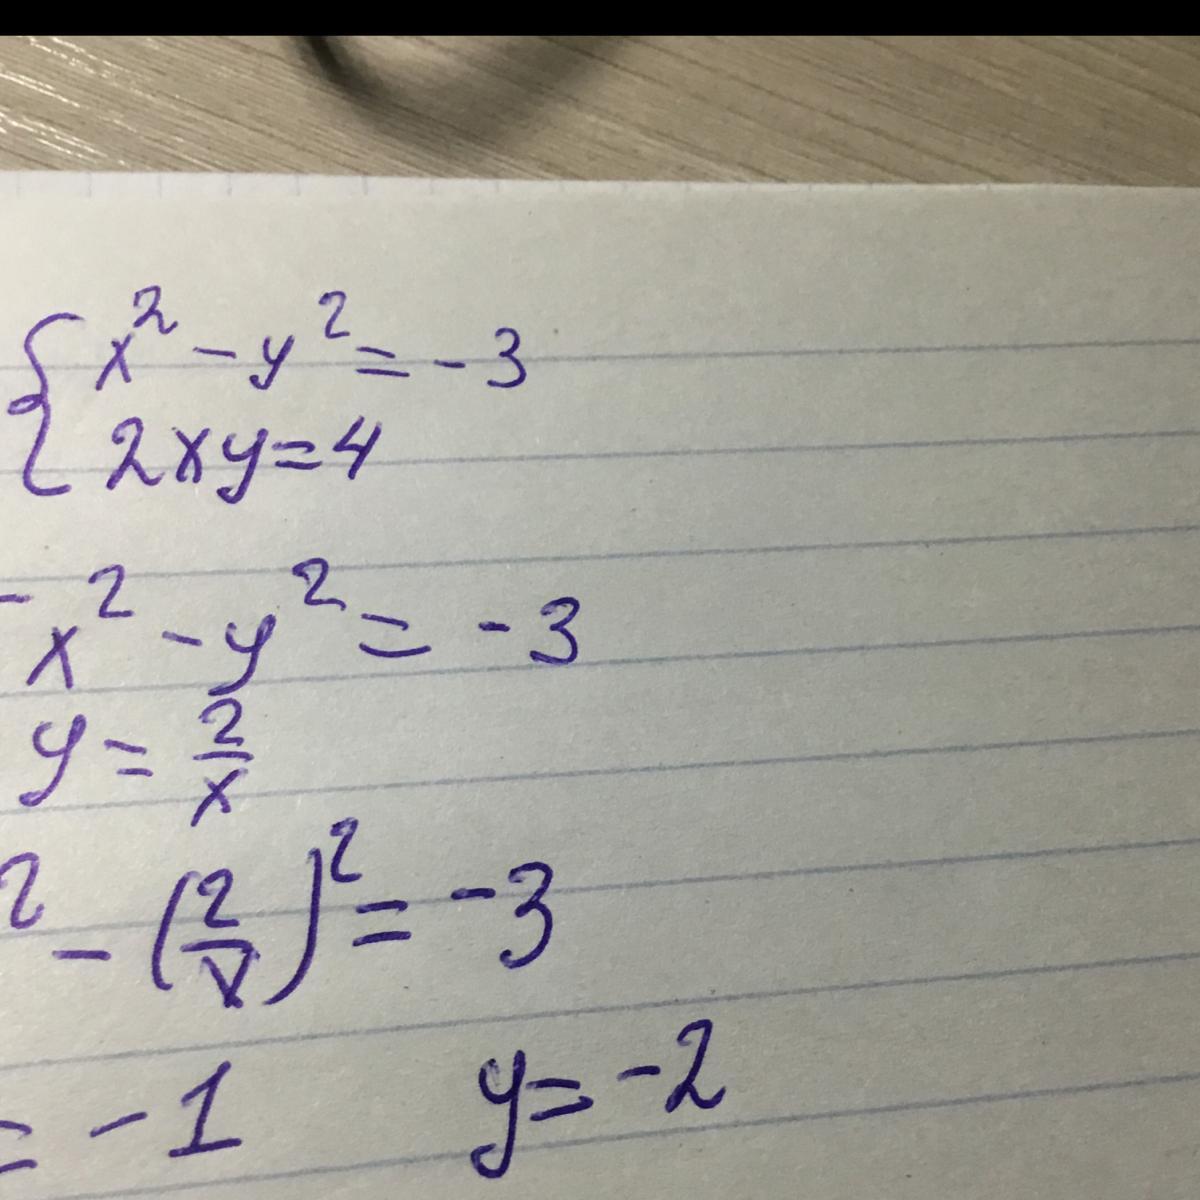 { x² - y² = -3
2xy = 4
x² - y² = -3
y = 2/x
² - (2/x)² = -3
= -1 y = -2